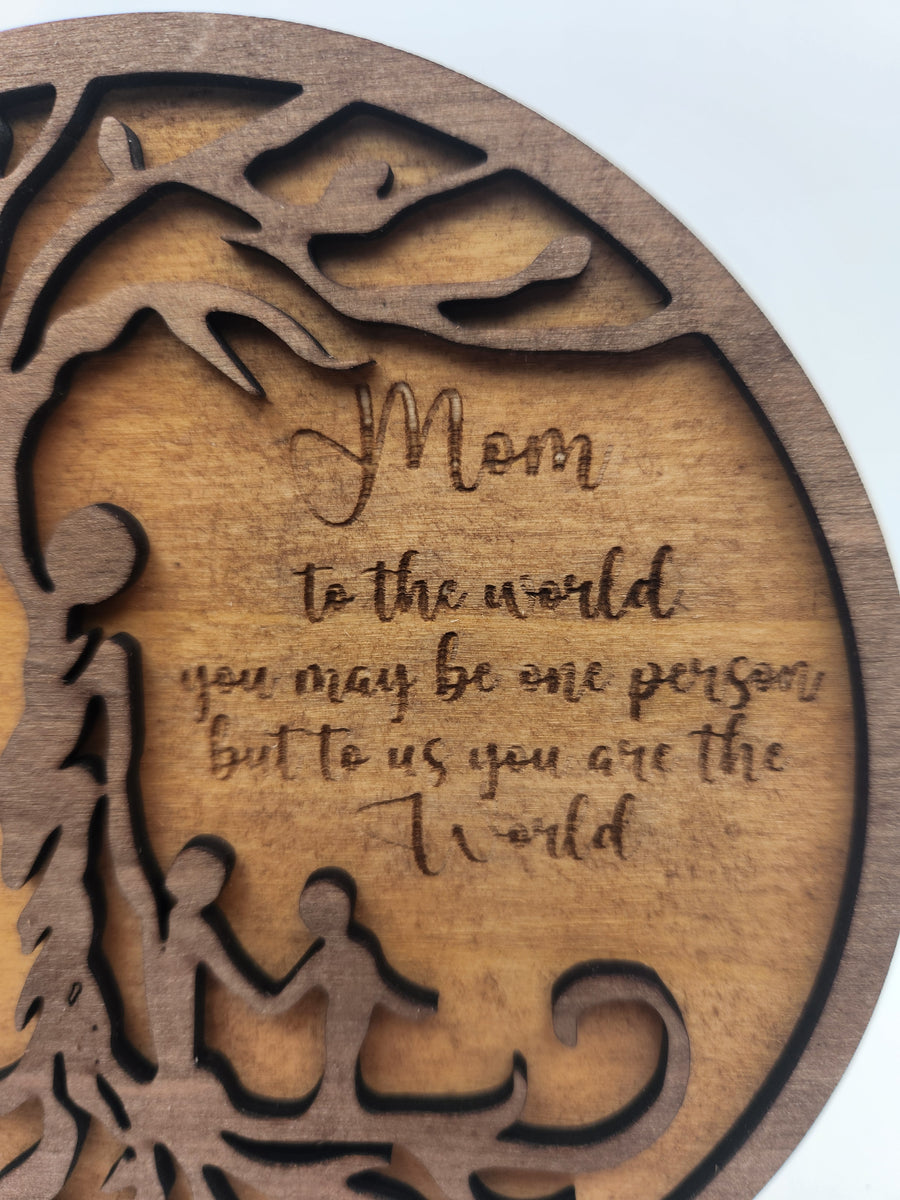 Mom
to the world
you may be one person
but to us you are the
World